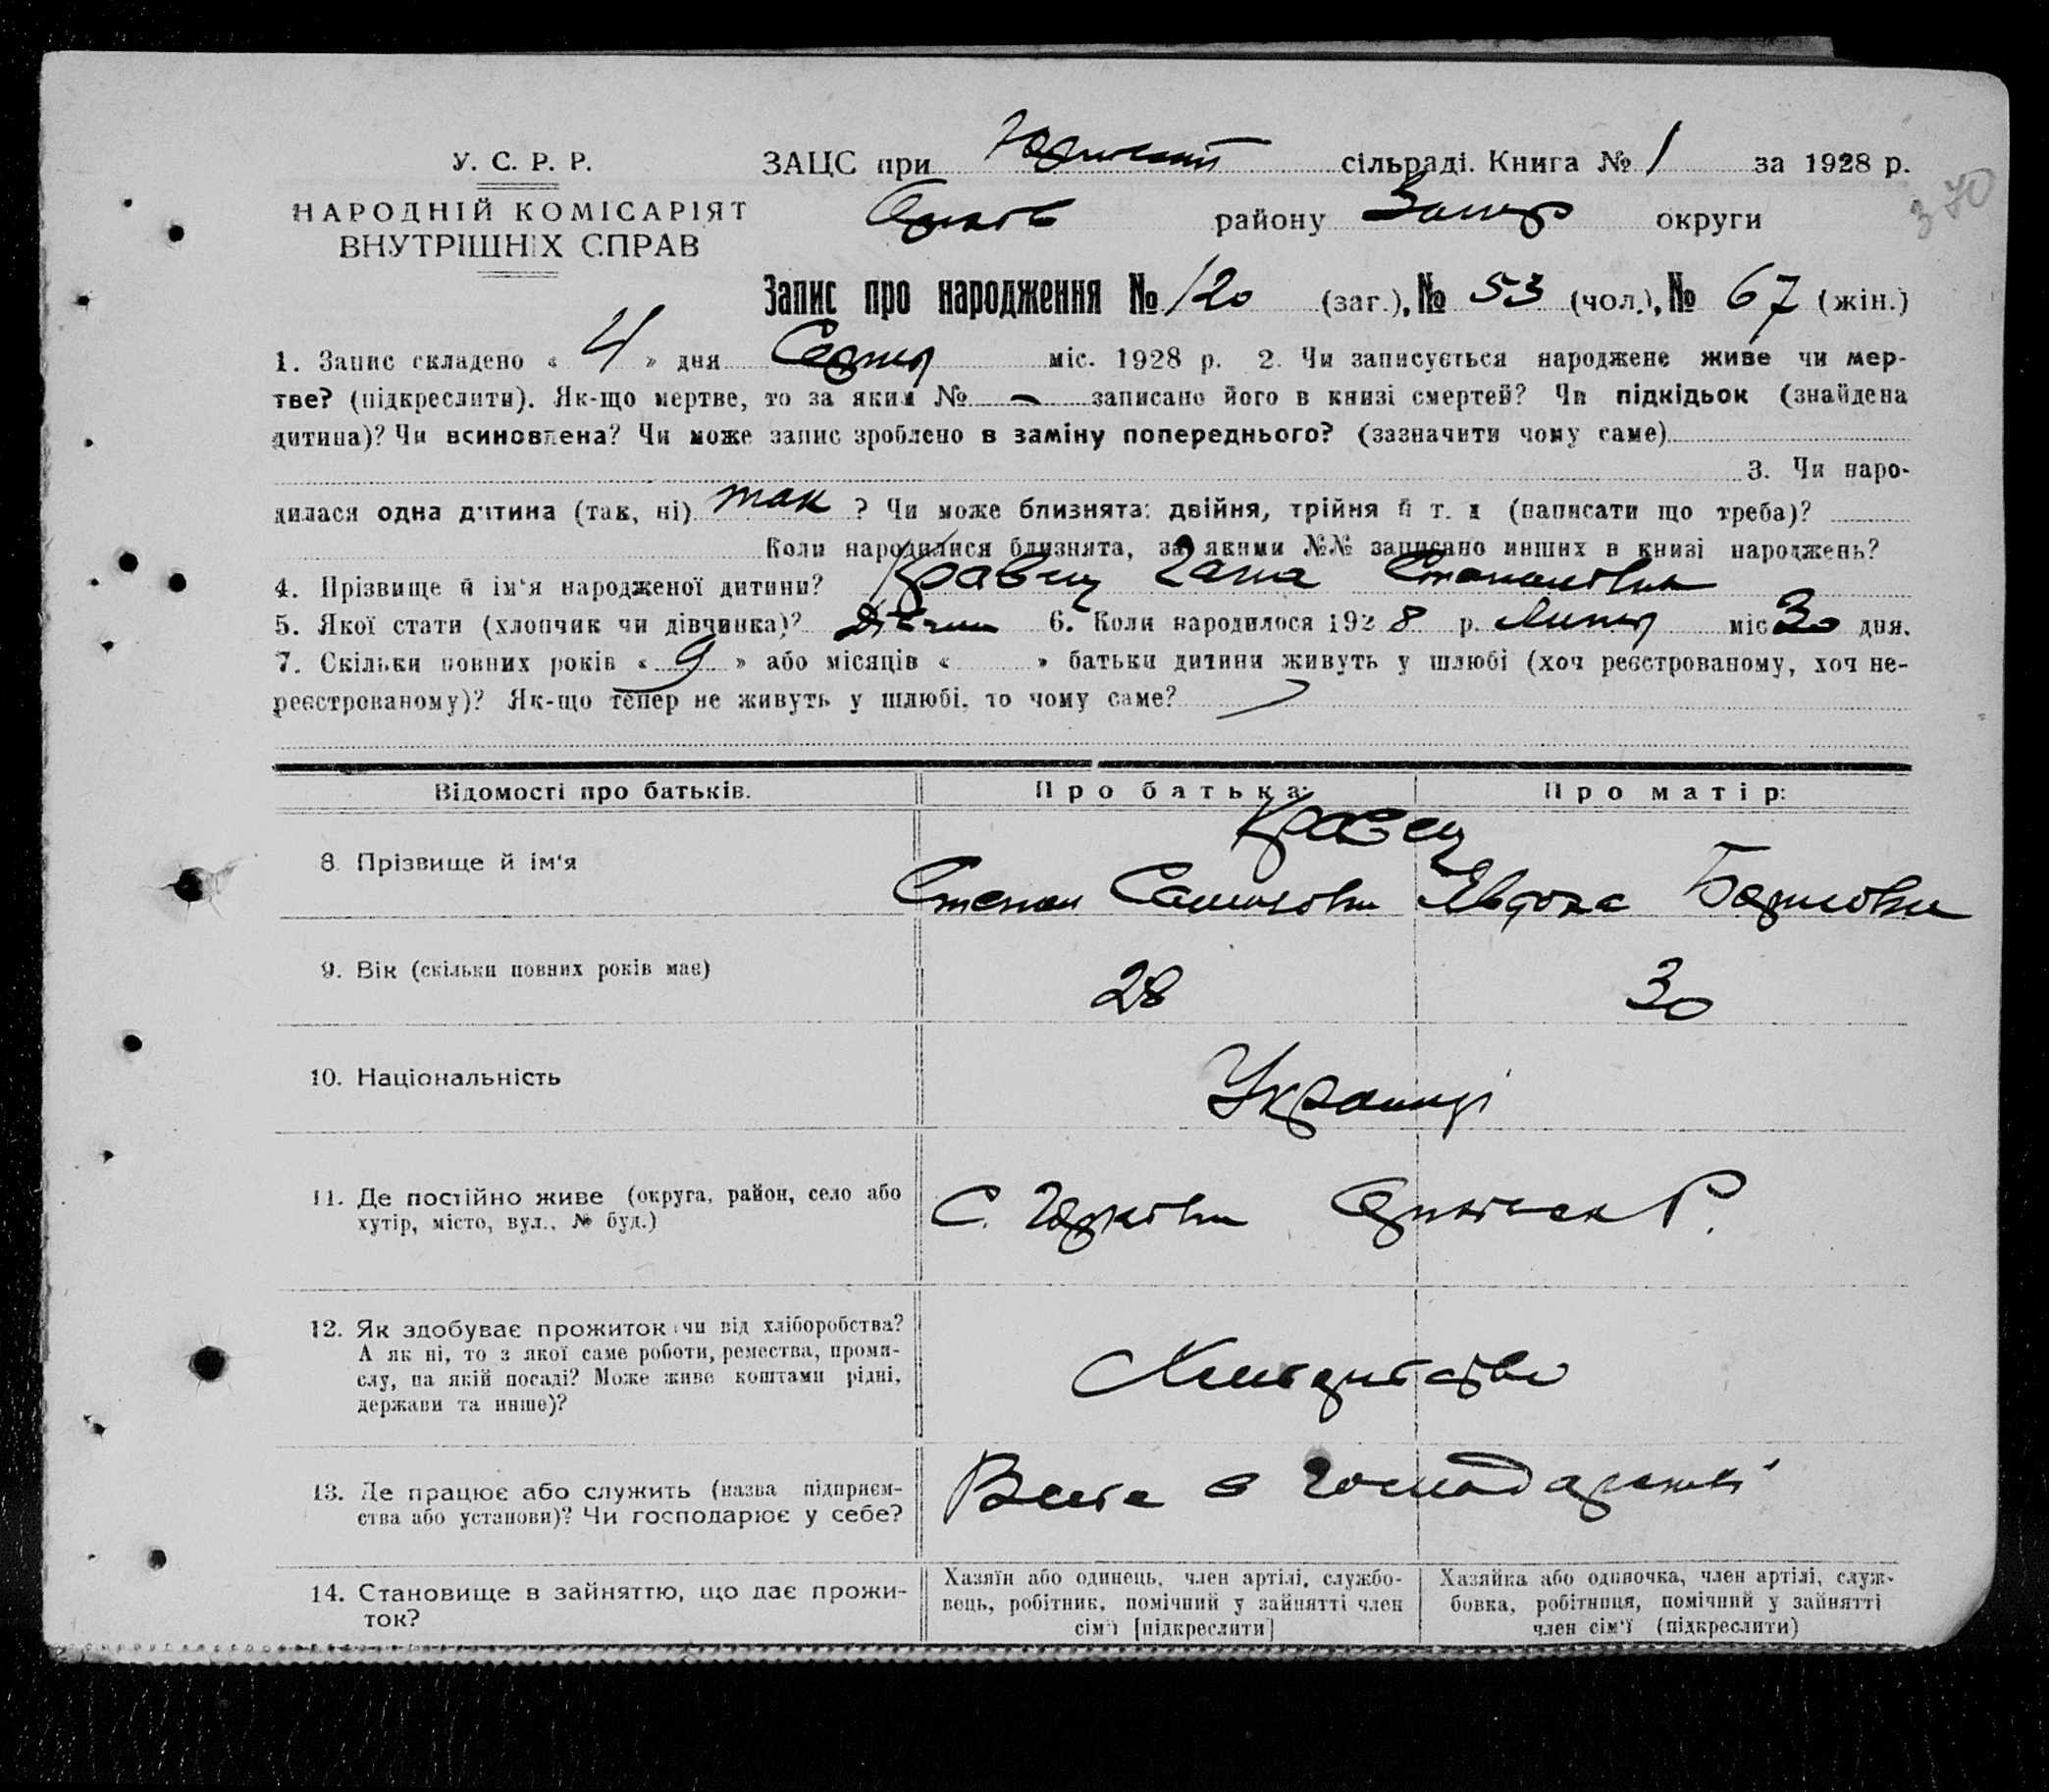 У. С. Р. Р.
НАРОДНІЙ КОМІСАРІЯТ
ВНУТРІШНІХ СПРАВ
ЗАЦС при сільраді. Книга № 1 за 1928 р.
району Запор округи
370
Запис про народження № 120 (заг.), № 53 (чол.), № 67 (жін.)
1. Запис складено « 4 » дня Серпня міс. 1928 р. 2. Чи записується народжене живе чи мер-
тве? (підкреслити). Як-що мертве, то за яким № — записано його в книзі смертей? Чи підкідьок (знайдена
дитина)? Чи всиновлена? Чи може запис зроблено в заміну попереднього? (зазначити чому саме)
3. Чи наро-
дилася одна дитина (так, ні) так ? Чи може близнята: двійня, трійня й т. д (написати що треба)?
Коли народилися близнята, за якими №№ записано инших в книзі народжень?
4. Прізвище й ім'я народженої дитини? Кравец Гана Степановна
5. Якої стати (хлопчик чи дівчинка)? Дівчин 6. Коли народилося 1928 р. Липня міс 30 дня.
7. Скільки повних років « 9 » або місяців « » батьки дитини живуть у шлюбі (хоч реєстрованому, хоч не-
реєстрованому)? Як-що тепер не живуть у шлюбі, то чому саме?
Відомості про батьків. Про батька: Про матір:
Кравец
8. Прізвище й ім'я Степан Евдока
9. Вік (скільки повних років має) 28 30
10. Національність Украинці
11. Де постійно живе (округа, район, село або
хутір, місто, вул., № буд.) С. Р.
12. Як здобуває прожиток (чи від хліборобства?
А як ні, то з якої саме роботи, ремества, проми-
слу, на якій посаді? Може живе коштами рідні,
держави та инше)?
13. Де працює або служить (назва підприєм-
ства або установи)? Чи господарює у себе? в господарстві
14. Становище в зайняттю, що дає прожи-
ток?
Хазяїн або одинець, член артілі, службо-
вець, робітник, помічний у зайнятті член
сім'ї [підкреслити]
Хазяйка або одиночка, член артілі, служ-
бовка, робітниця, помічний у зайнятті
член сім'ї (підкреслити)